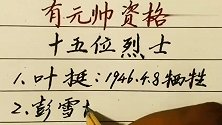 有元帅资格
十五位烈士
1.叶挺:1946.4.8牺牲
2.彭雪